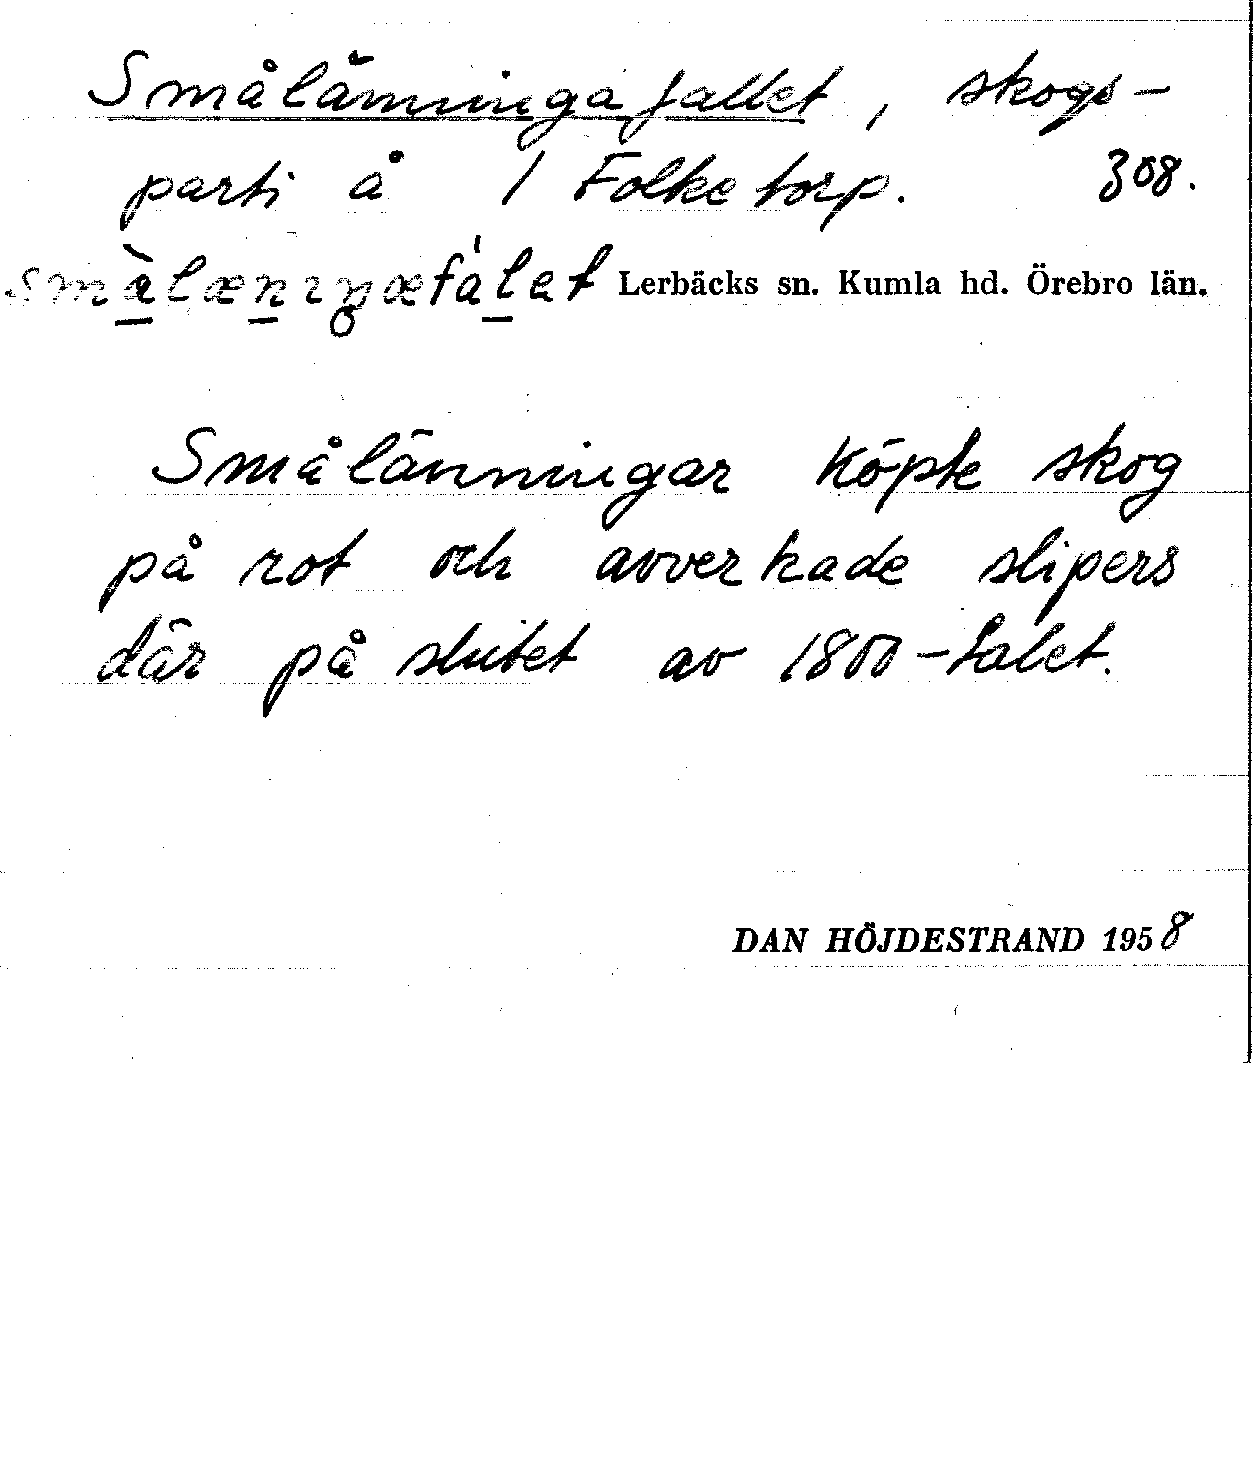 Smålänningafallet, skogs-
parti å 1 Folketorp. 308.
Lerbäcks sn. Kumla hd. Örebro län.
Smålänningar köpte skog
på rot och avverkade slipers
där på slutet av 1800-talet.
DAN HÖJDESTRAND 1958